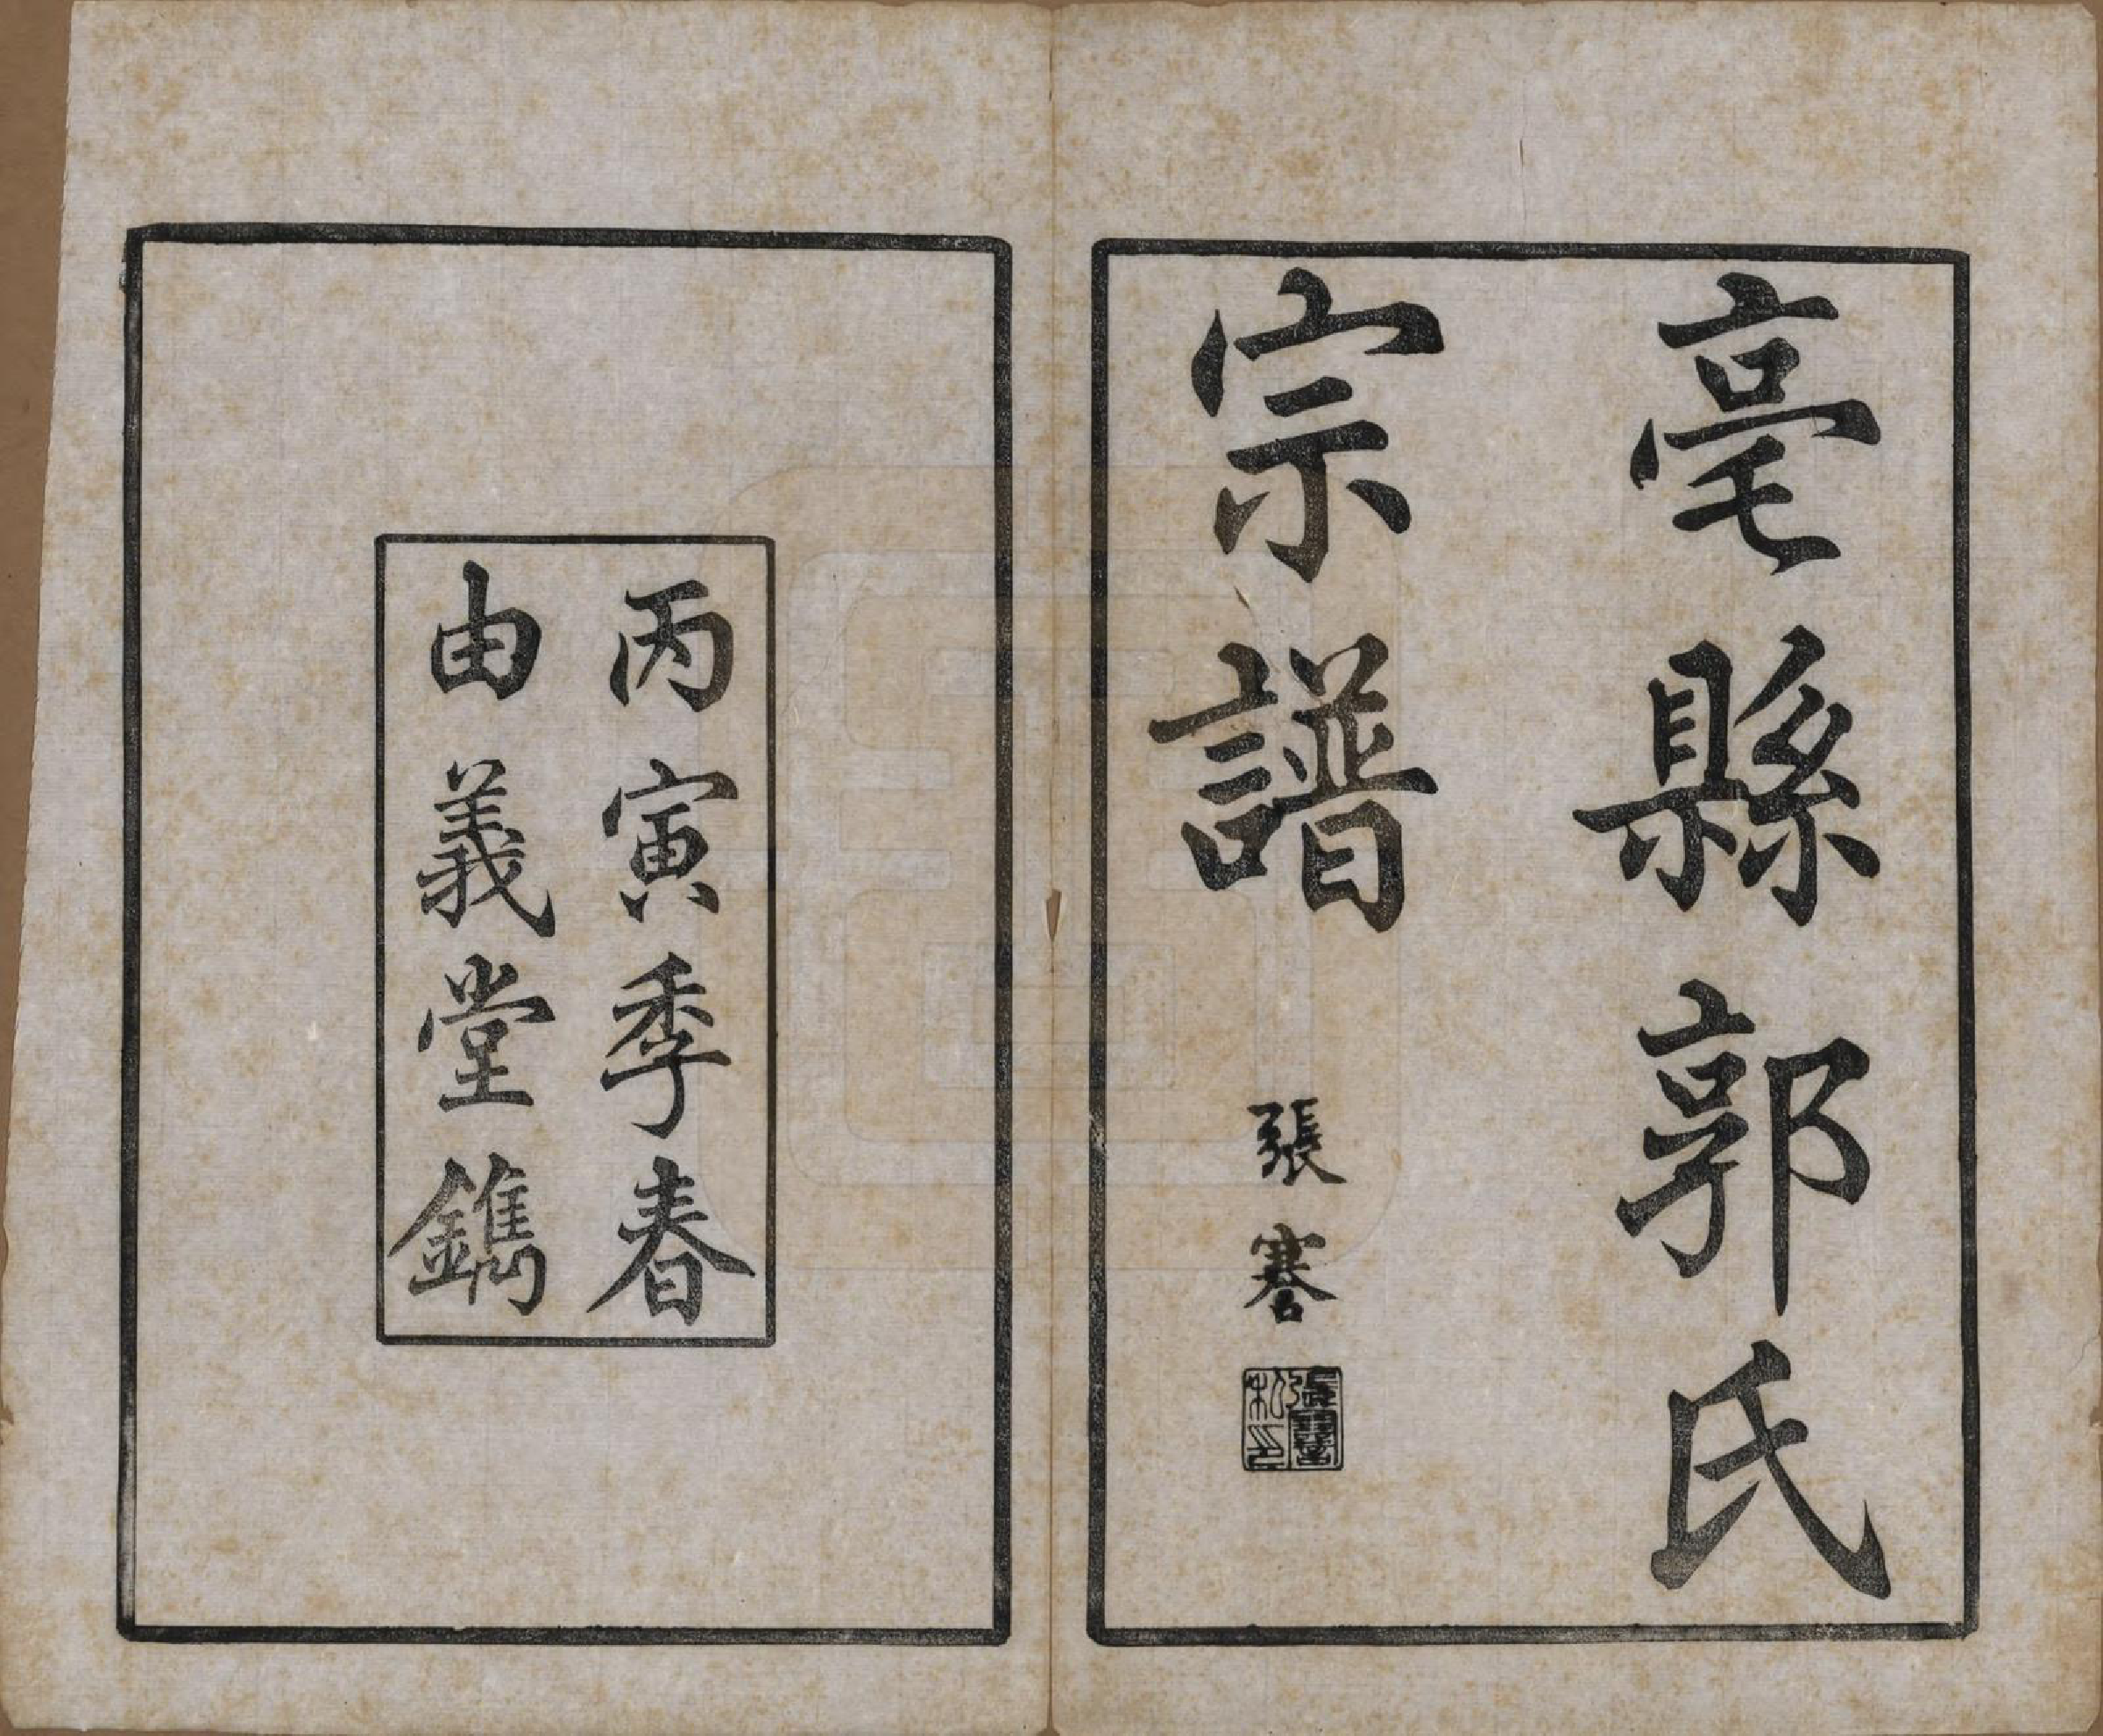 亳縣郭氏
宗譜
張謇
張謇私印
丙寅季春
由義堂鐫